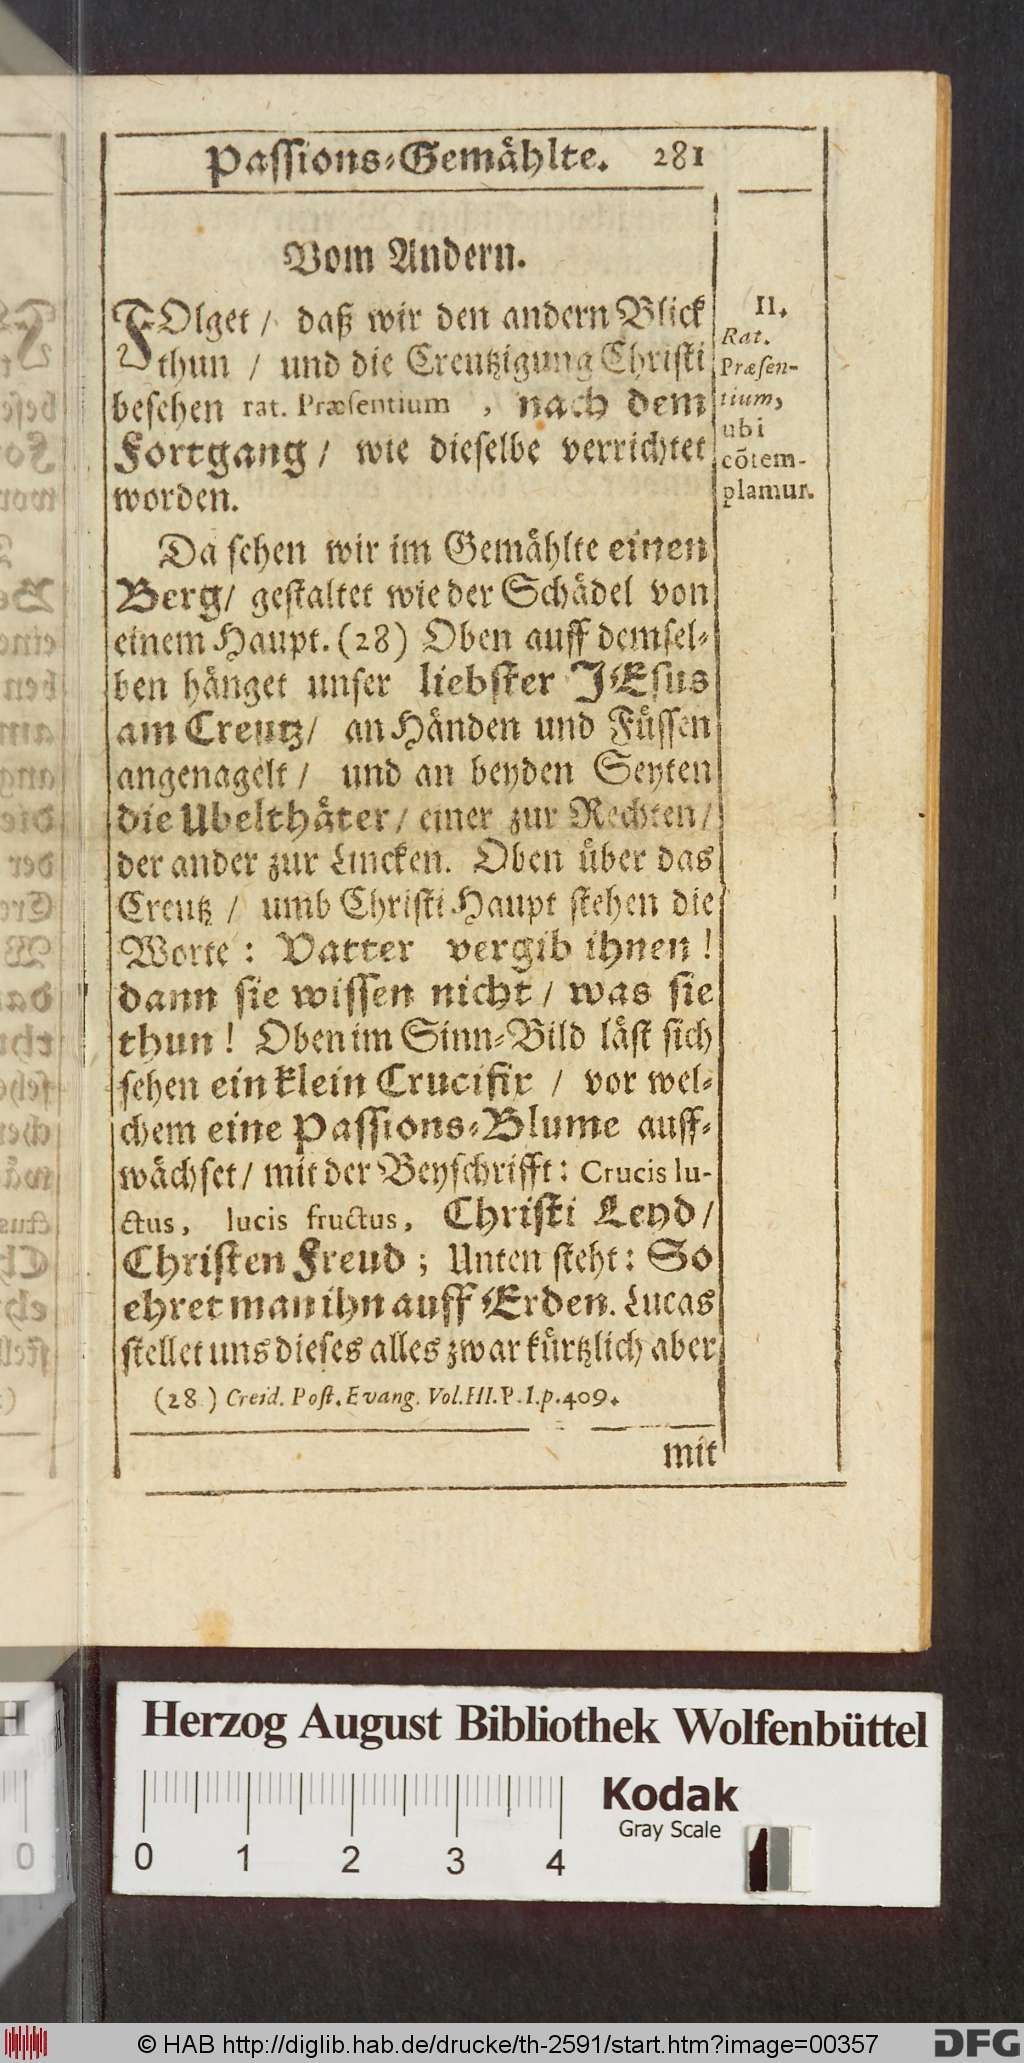 Passions-Gemählte. 281
Vom Andern.
FOlget / daß wir den andern Blick
thun / und die Creutzigung Christi
besehen rat. Præsentium , nach dem
Fortgang / wie dieselbe verrichtet
worden.
II.
Rat.
Præsen-
tium,
ubi
cõtem-
plamur.
Da sehen wir im Gemählte einen
Berg / gestaltet wie der Schädel von
einem Haupt. (28) Oben auff demsel-
ben hänget unser liebster JEsus
am Creutz / an Händen und Füssen
angenagelt / und an beyden Seyten
die Ubelthäter / einer zur Rechten /
der ander zur Lincken. Oben über das
Creutz / umb Christi Haupt stehen die
Worte : Vatter vergib ihnen !
dann sie wissen nicht / was sie
thun ! Oben im Sinn-Bild läst sich
sehen ein klein Crucifix / vor wel-
chem eine Passions-Blume auff-
wächset / mit der Beyschrifft : Crucis lu-
ctus, lucis fructus, Christi Leyd /
Christen Freud ; Unten steht : So
ehret man ihn auff Erden. Lucas
stellet uns dieses alles zwar kürtzlich aber
(28) Creid. Post. Evang. Vol. III. P. I. p. 409.
mit
Herzog August Bibliothek Wolfenbüttel
0 1 2 3 4
Kodak
Gray Scale
© HAB http://diglib.hab.de/drucke/th-2591/start.htm?image=00357
DFG